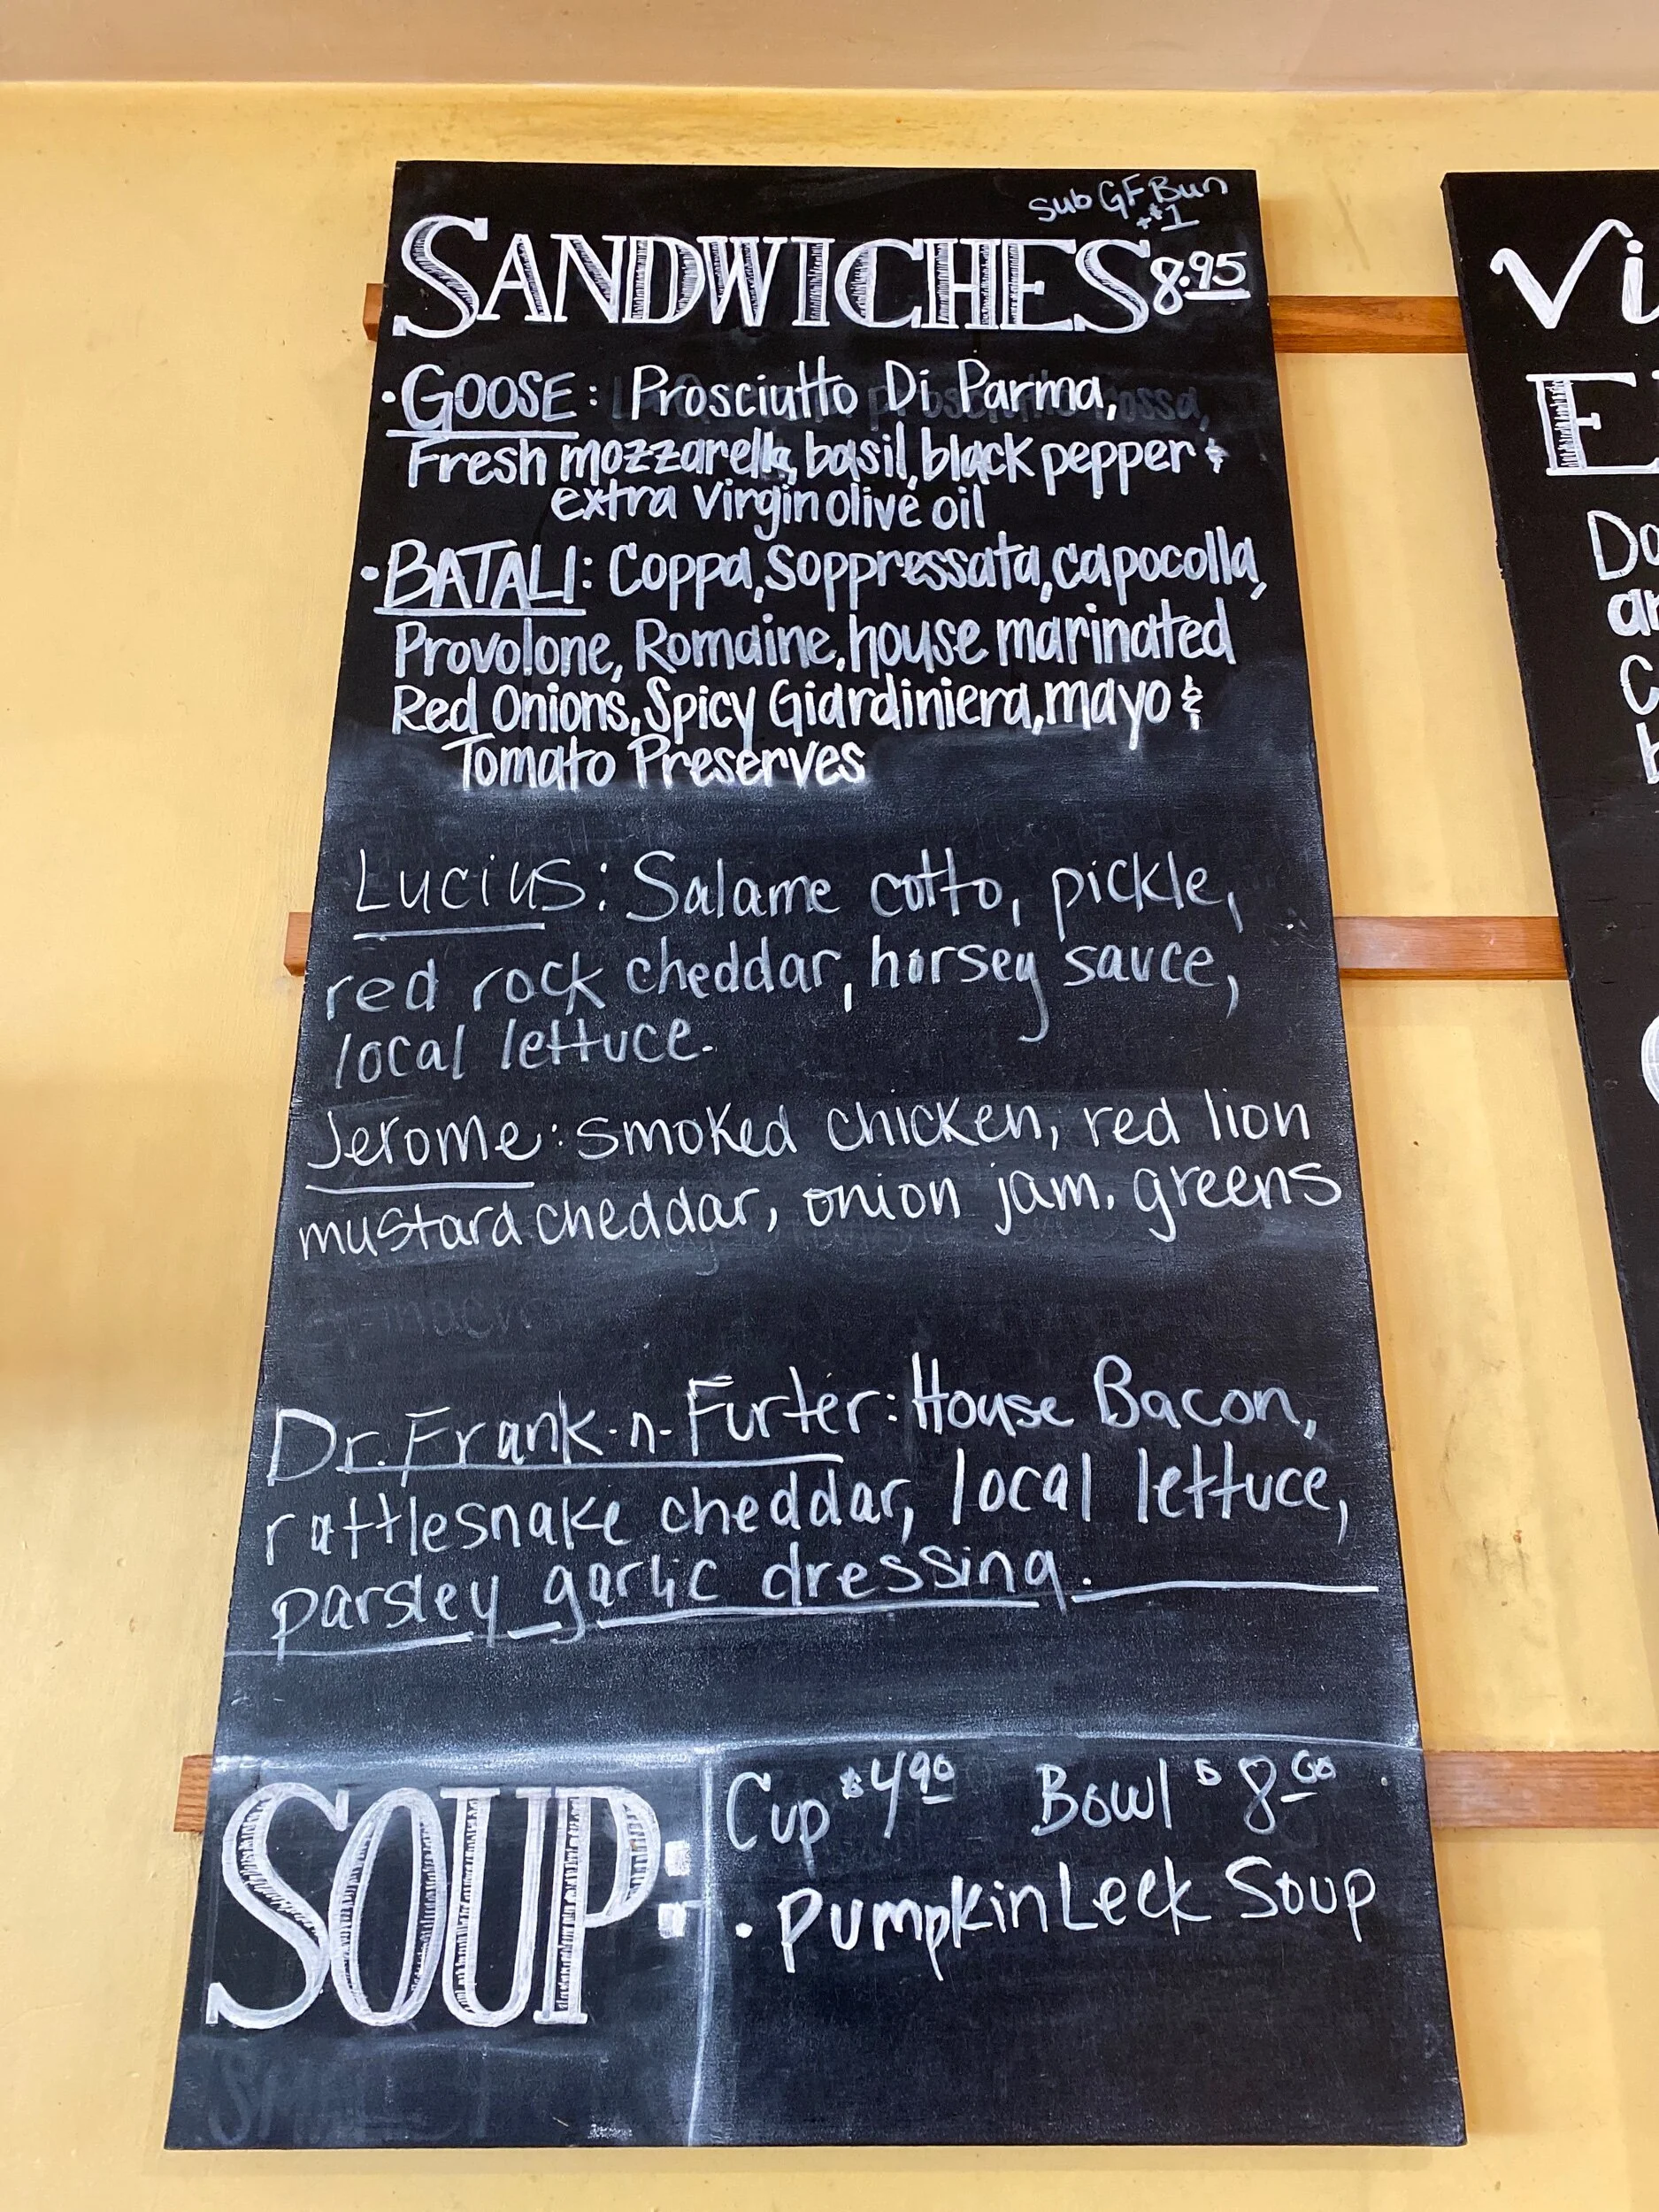 sub GF Bun
+$1
SANDWICHES 8.95
• GOOSE: Prosciutto Di Parma,
Fresh mozzarella, basil, black pepper &
extra virgin olive oil
• BATALI: Coppa, soppressata, capocolla,
Provolone, Romaine, house marinated
Red Onions, Spicy Giardiniera, mayo &
Tomato Preserves
Lucius: Salame cotto, pickle,
red rock cheddar, horsey sauce,
local lettuce.
Jerome: smoked chicken, red lion
mustard cheddar, onion jam, greens
Dr. Frank-n-Furter: House Bacon,
rattlesnake cheddar, local lettuce,
parsley garlic dressing.
SOUP:
Cup $4.90 Bowl $8.00
• Pumpkin Leek Soup
Vi
E
Do
ar
C
b